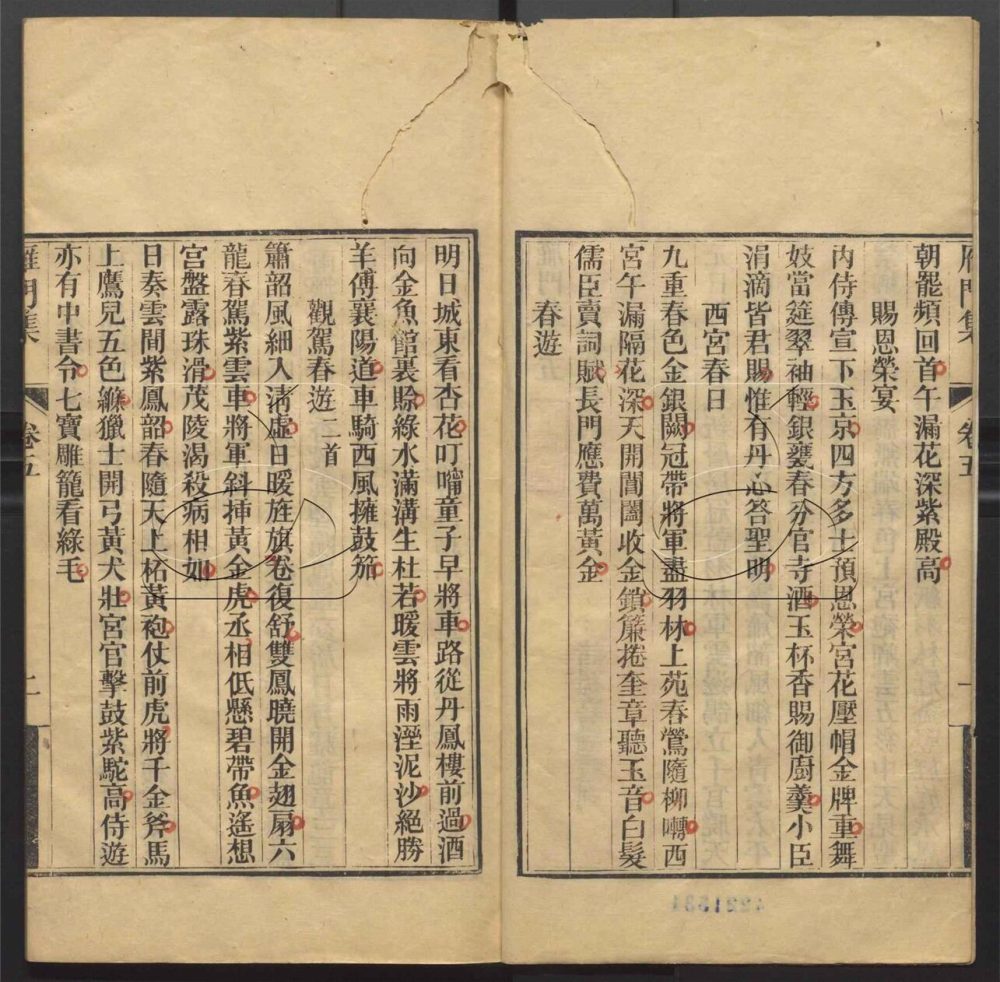 卷五
一
朝罷頻回首午漏花深紫殿高
賜恩榮宴
內侍傳宣下玉京四方多士預恩榮宮花壓帽金牌重舞
妓當筵翠袖輕銀甕春分官寺酒玉杯香賜御廚羹小臣
涓滴皆君賜惟有丹心答聖明
西宮春日
九重春色金銀闕冠帶將軍盡羽林上苑春鶯隨柳囀西
宮午漏隔花深天開閶闔收金鎖簾捲奎章聽玉音白髮
儒臣賣詞賦長門應費萬黃金
春遊
明日城東看杏花叮嚀童子早將車路從丹鳳樓前過酒
向金魚館裏賒綠水滿溝生杜若暖雲將雨溼泥沙絕勝
羊傅襄陽道車騎西風擁鼓笳
觀駕春遊二首
簫韶風細入清虛日暖旌旗卷復舒雙鳳曉開金翅扇六
龍春駕紫雲車將軍斜揷黃金虎丞相低懸碧帶魚遙想
宮盤露珠滑茂陵渴殺病相如
日奏雲間紫鳳韶春隨天上柘黃袍仗前虎將千金斧馬
上鷹兒五色縧獵士開弓黃犬壯宮官擊鼓紫駝高侍遊
亦有中書令七寶雕籠看綠毛
卷五
二